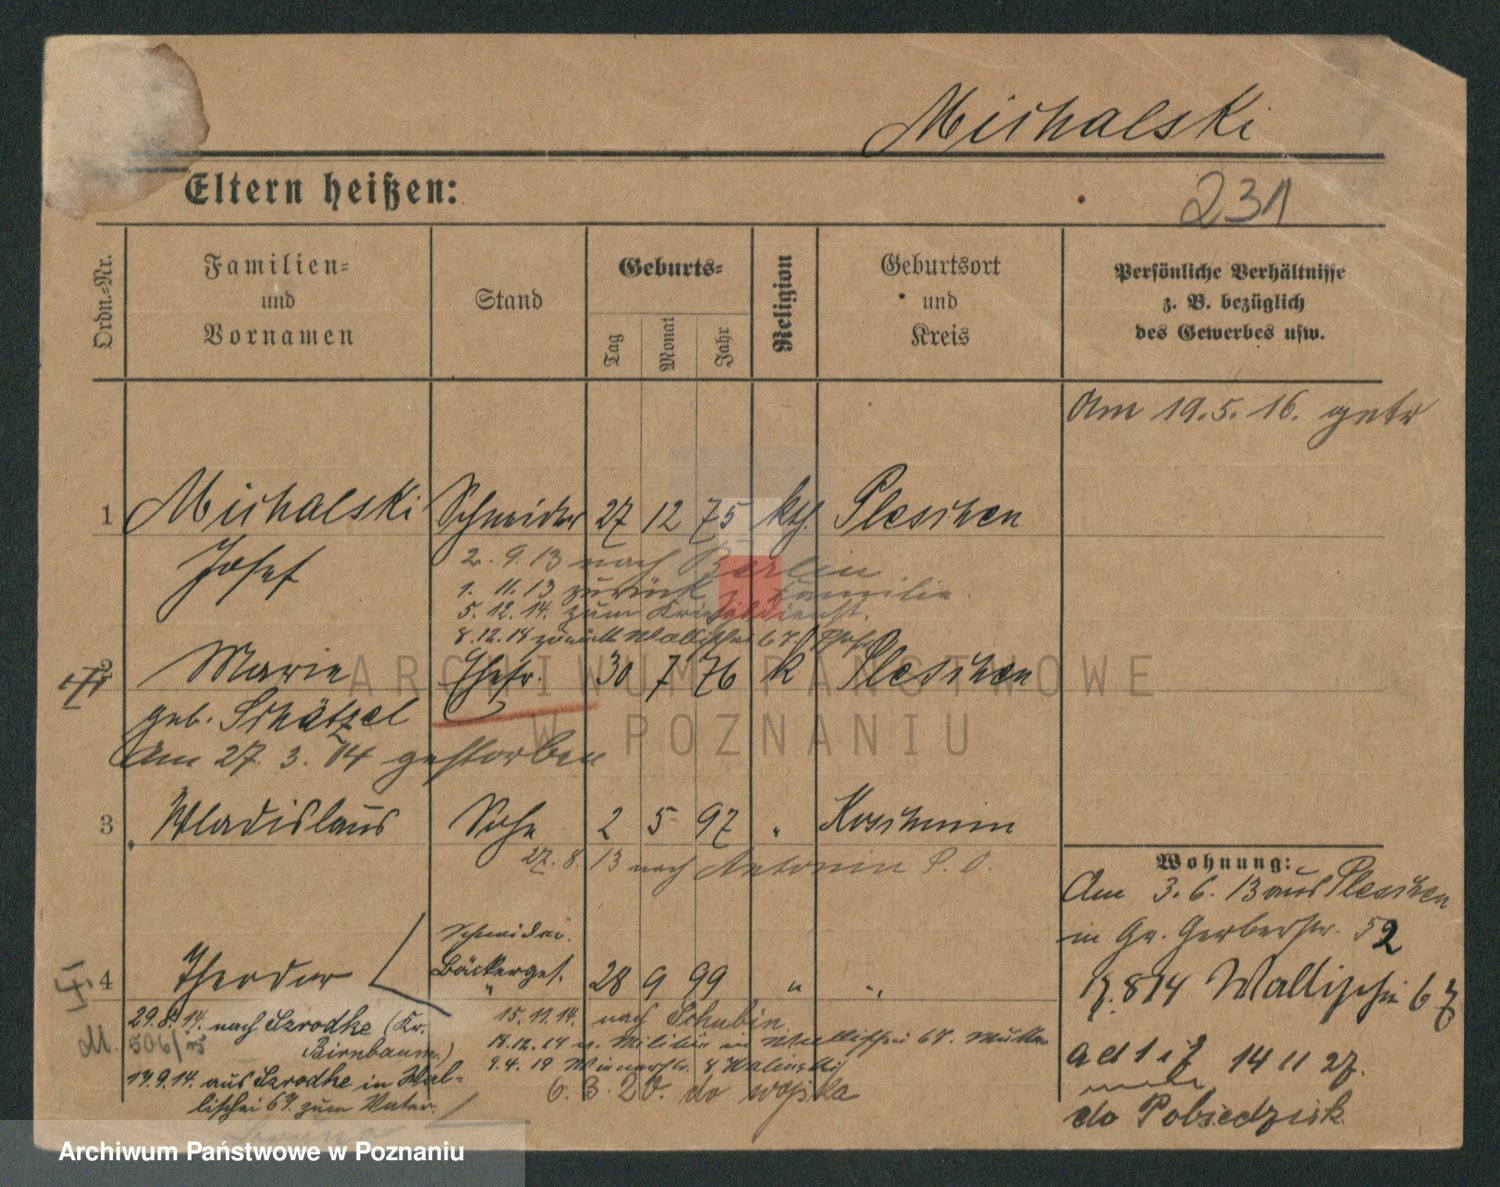 Michalski
Eltern heißen:
231
Ordn.-Nr.
Familien-
und
Vornamen
Stand
Geburts-
Tag
Monat
Jahr
Religion
Geburtsort
und
Kreis
Persönliche Verhältnisse
z. B. bezüglich
des Gewerbes usw.
Am 19.5.16. getr
1 Michalski Schneider 27 12 75 kth Pleschen
Josef
2. 9. 13 nach Berlin
1. 11. 13 zurück z. Familie.
5. 12. 14. zum Kriegsdienst.
8.12.18 zurück Wallischei 67
2 Marie Ehefr. 30 7 76 k Pleschen
geb. Schätzel
Am 27. 3. 14 gestorben
3 Wladislaus Sohn 2 5 97 " Koschmin
27. 8. 13 nach Antonin P. O.
Wohnung:
Am 3. 6. 13 aus Pleschen
in Gr. Gerberstr. 52
17.8 14 Wallischei 67
ad 1 i 3 14 11 27.
do Pobiedzisk
Schneider.
4 Theodor Bäckerges. 28 9 99 " "
29.8.14. nach Szrodke (Kr.
Birnbaum.)
M. 506/15
17.9.14. aus Szrodke in Wal-
lischei 67. zum Vater.
15. 11. 14. nach Schubin
18.12.18 v. Militär in Wallischei 67.
9.4. 19
6. 3. 20. do wojska
ARCHIWUM PAŃSTWOWE
W POZNANIU
Archiwum Państwowe w Poznaniu